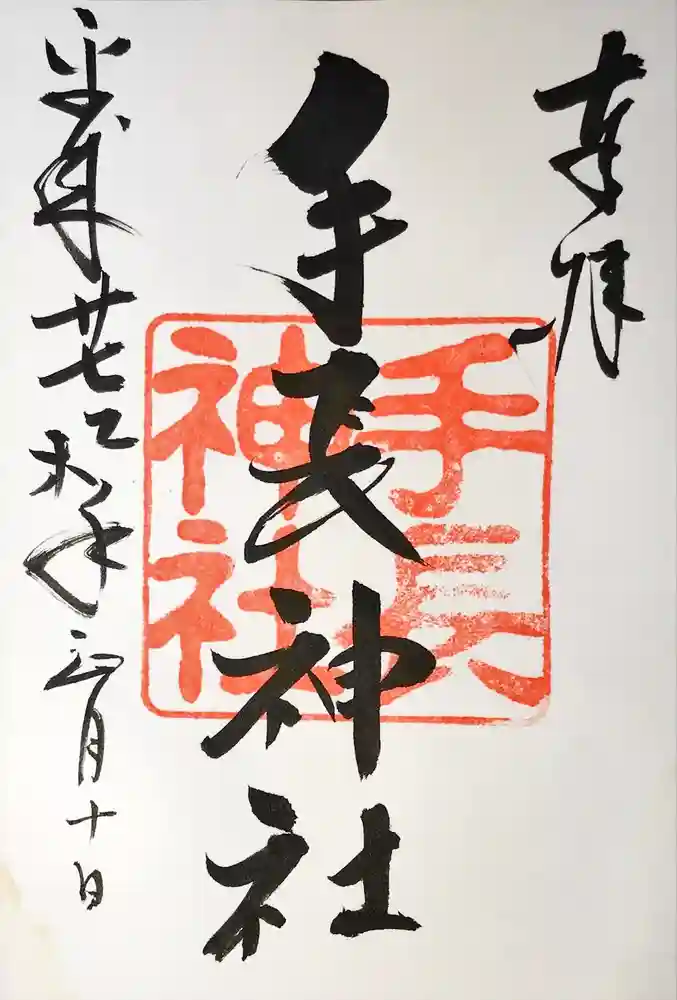 奉拝
手長神社
手長
神社
平成廿七乙未年正月十日